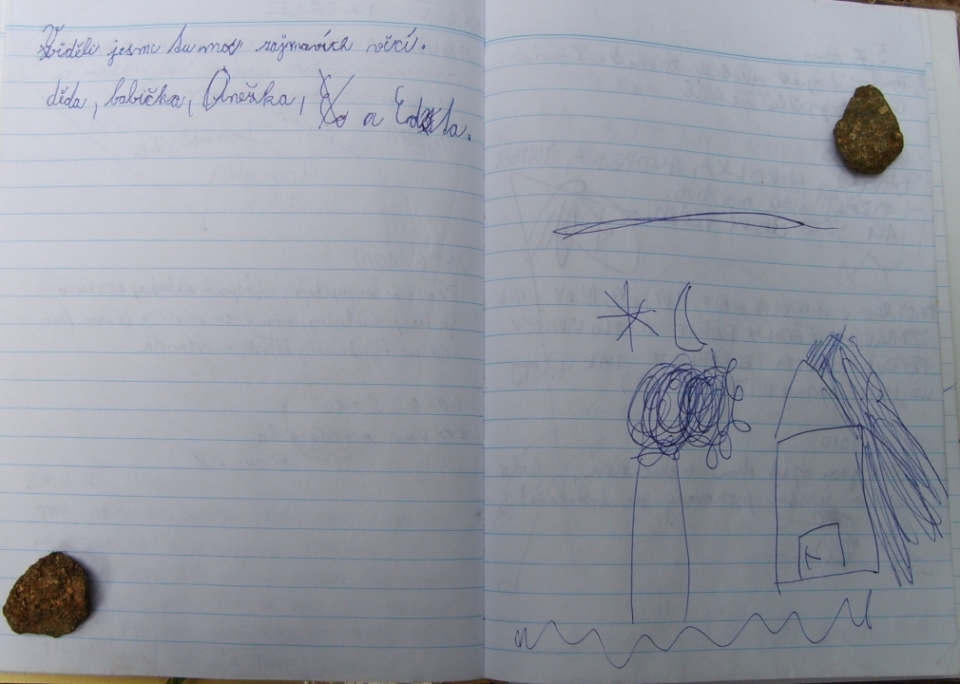 Viděli jsme tu moc zajmavích věcí.
děda, babička, Anežka, a Edita.